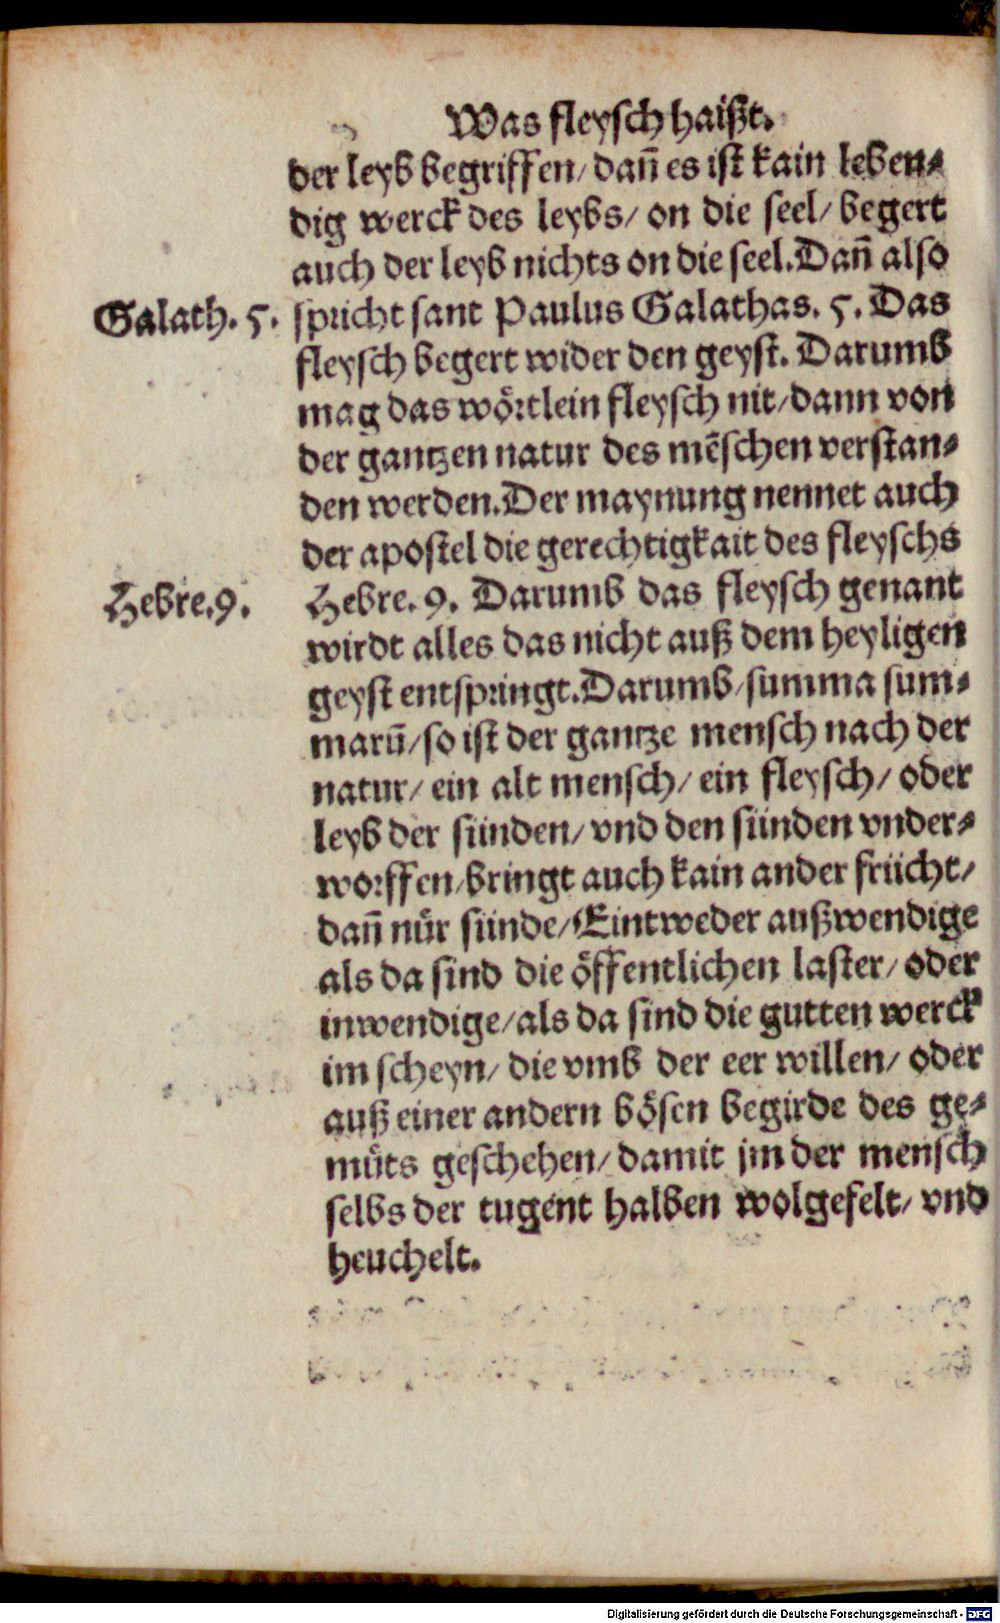 Was fleysch haißt.
der leyb begriffen/ dañ es ist kain leben⸗
dig werck des leybs/ on die seel/ begert
auch der leyb nichts on die seel. Dañ also
Galath. 5. spricht sant Paulus Galathas. 5. Das
fleysch begert wider den geyst. Darumb
mag das woͤrtlein fleysch nit/ dann von
der gantzen natur des mẽschen verstan⸗
den werden. Der maynung nennet auch
der apostel die gerechtigkait des fleyschs
Hebre. 9. Hebre. 9. Darumb das fleysch genant
wirdt alles das nicht auß dem heyligen
geyst entspringt. Darumb/ summa sum⸗
marũ/ so ist der gantze mensch nach der
natur/ ein alt mensch/ ein fleysch/ oder
leyb der sünden/ vnd den sünden vnder⸗
worffen/ bringt auch kain ander frücht/
dañ nůr sünde/ Eintweder außwendige
als da sind die oͤffentlichen laster/ oder
inwendige/ als da sind die gutten werck
im scheyn/ die vmb der eer willen/ oder
auß einer andern boͤsen begirde des ge⸗
muͤts geschehen/ damit jm der mensch
selbs der tugent halben wolgefelt/ vnd
heuchelt.
Digitalisierung gefördert durch die Deutsche Forschungsgemeinschaft - DFG